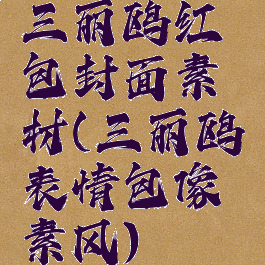 三丽鸥红
包封面素
材(三丽鸥
表情包像
素风)